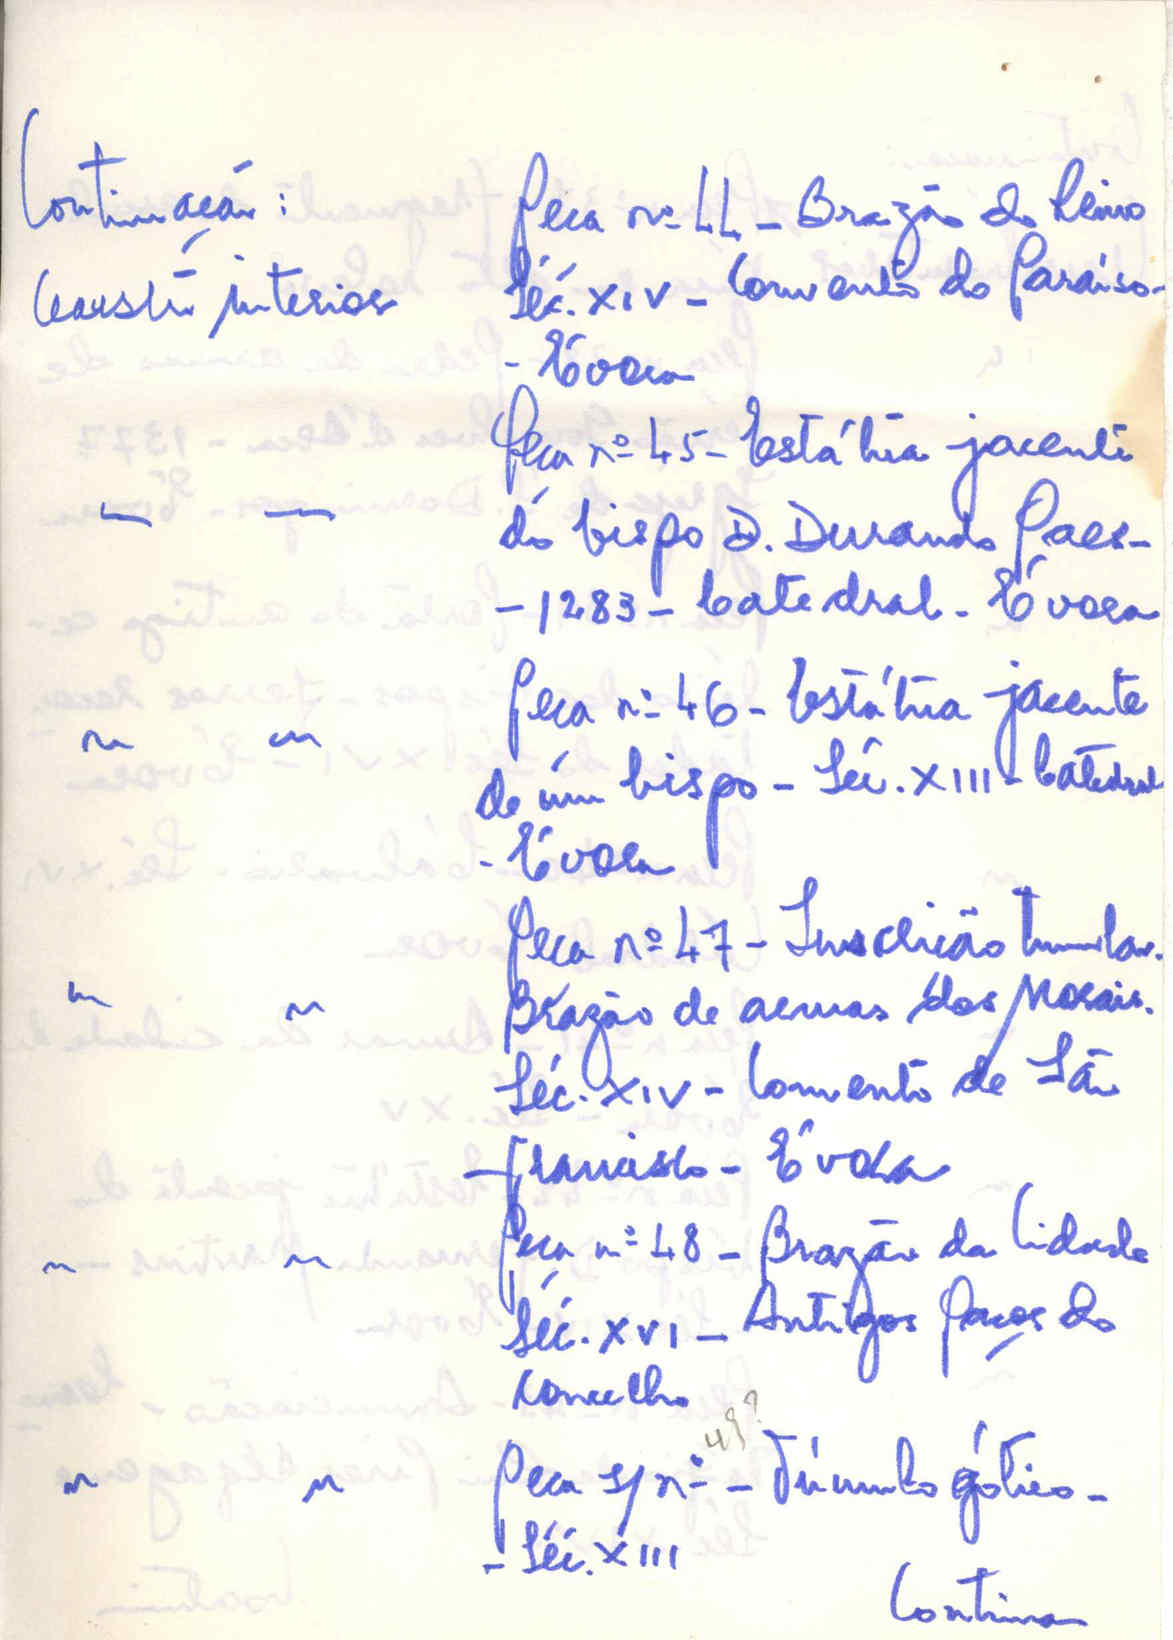 Continuação:
Claustro interior
Peça nº 44 - Brazão do Reino
Séc. XIV - Convento do Paraíso -
- Évora
Peça nº 45 - Estátua jacente
do bispo D. Durando Paes -
- 1283 - Catedral - Évora
" "
Peça nº 46 - Estátua jacente
de um bispo - Séc. XIII - Catedral
- Évora
" "
Peça nº 47 - Inscrição tumular.
Brazão de armas dos Morais.
Séc. XIV - Convento de São
Francisco - Évora
" "
Peça nº 48 - Brazão da Cidade
Séc. XVI - Antigos Paços do
concelho
" "
49?
Peça s/ nº - Túmulo gótico -
- Séc. XIII
" "
Continua